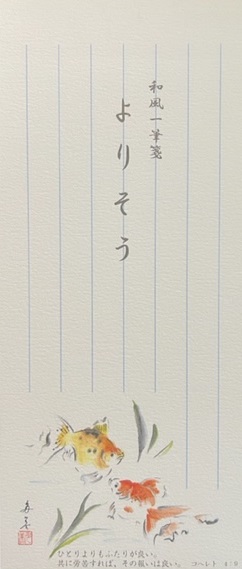 和風一筆箋
よりそう
ひとりよりもふたりが良い。
共に労苦すれば、その報いは良い。
コヘレト 4:9